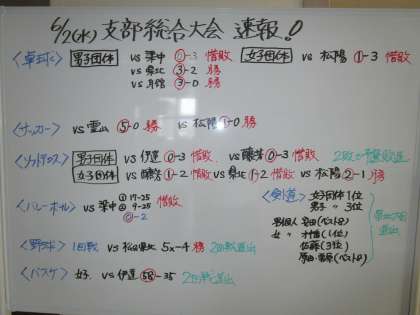 6/2(水) 支部総合大会 速報!
〈卓球〉 男子団体 vs 梁中 0-3 惜敗 女子団体 vs 松陽 1-3 惜敗
vs 県北 3-2 勝
vs 月舘 3-0 勝
〈サッカー〉 vs 霊山 5-0 勝 vs 松陽 1-0 勝
〈ソフトテニス〉 男子団体 vs 伊達 0-3 惜敗 vs 醸芳 0-3 惜敗 2敗で予選敗退
女子団体 vs 醸芳 1-2 惜敗 vs 県北 1-2 惜敗 vs 松陽 2-1 勝
〈バレーボール〉 vs 梁中 ① 17-25 惜敗
② 9-25
0-2
〈剣道〉 女子団体 1位
男子 〃 3位
男個人 (ベスト8)
女 〃 (1位)
佐藤(3位)
(ベスト8)
県北大会進出
〈野球〉 1回戦 vs 県北 5x-4 勝 2回戦進出
〈バスケ〉 女子 vs 伊達 58-35 2回戦進出